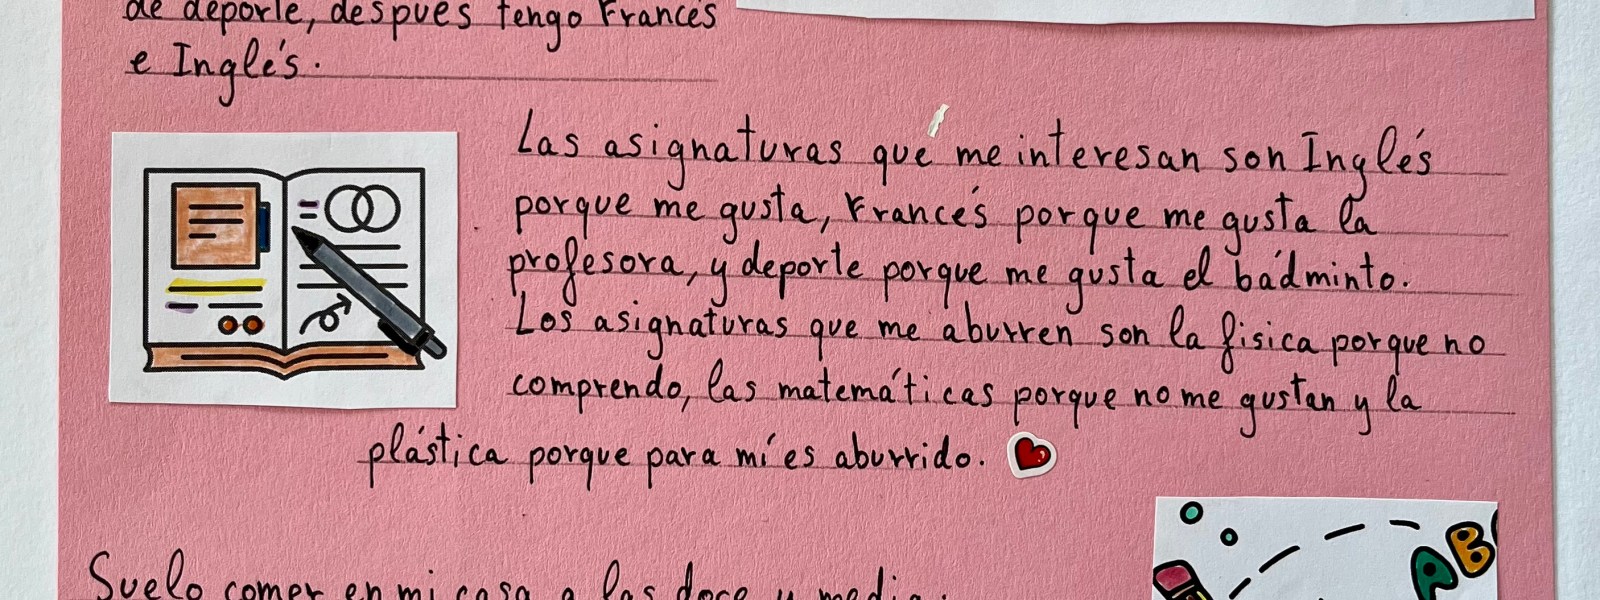 de deporte, después tengo Francés
e Inglés.
Las asignaturas que me interesan son Inglés
porque me gusta, Francés porque me gusta la
profesora, y deporte porque me gusta el bádminto.
Los asignaturas que me aburren son la fisica porque no
comprendo, las matemáticas porque no me gustan y la
plástica porque para mí es aburrido.
AB
Suelo comer en mi casa a las doce y media.